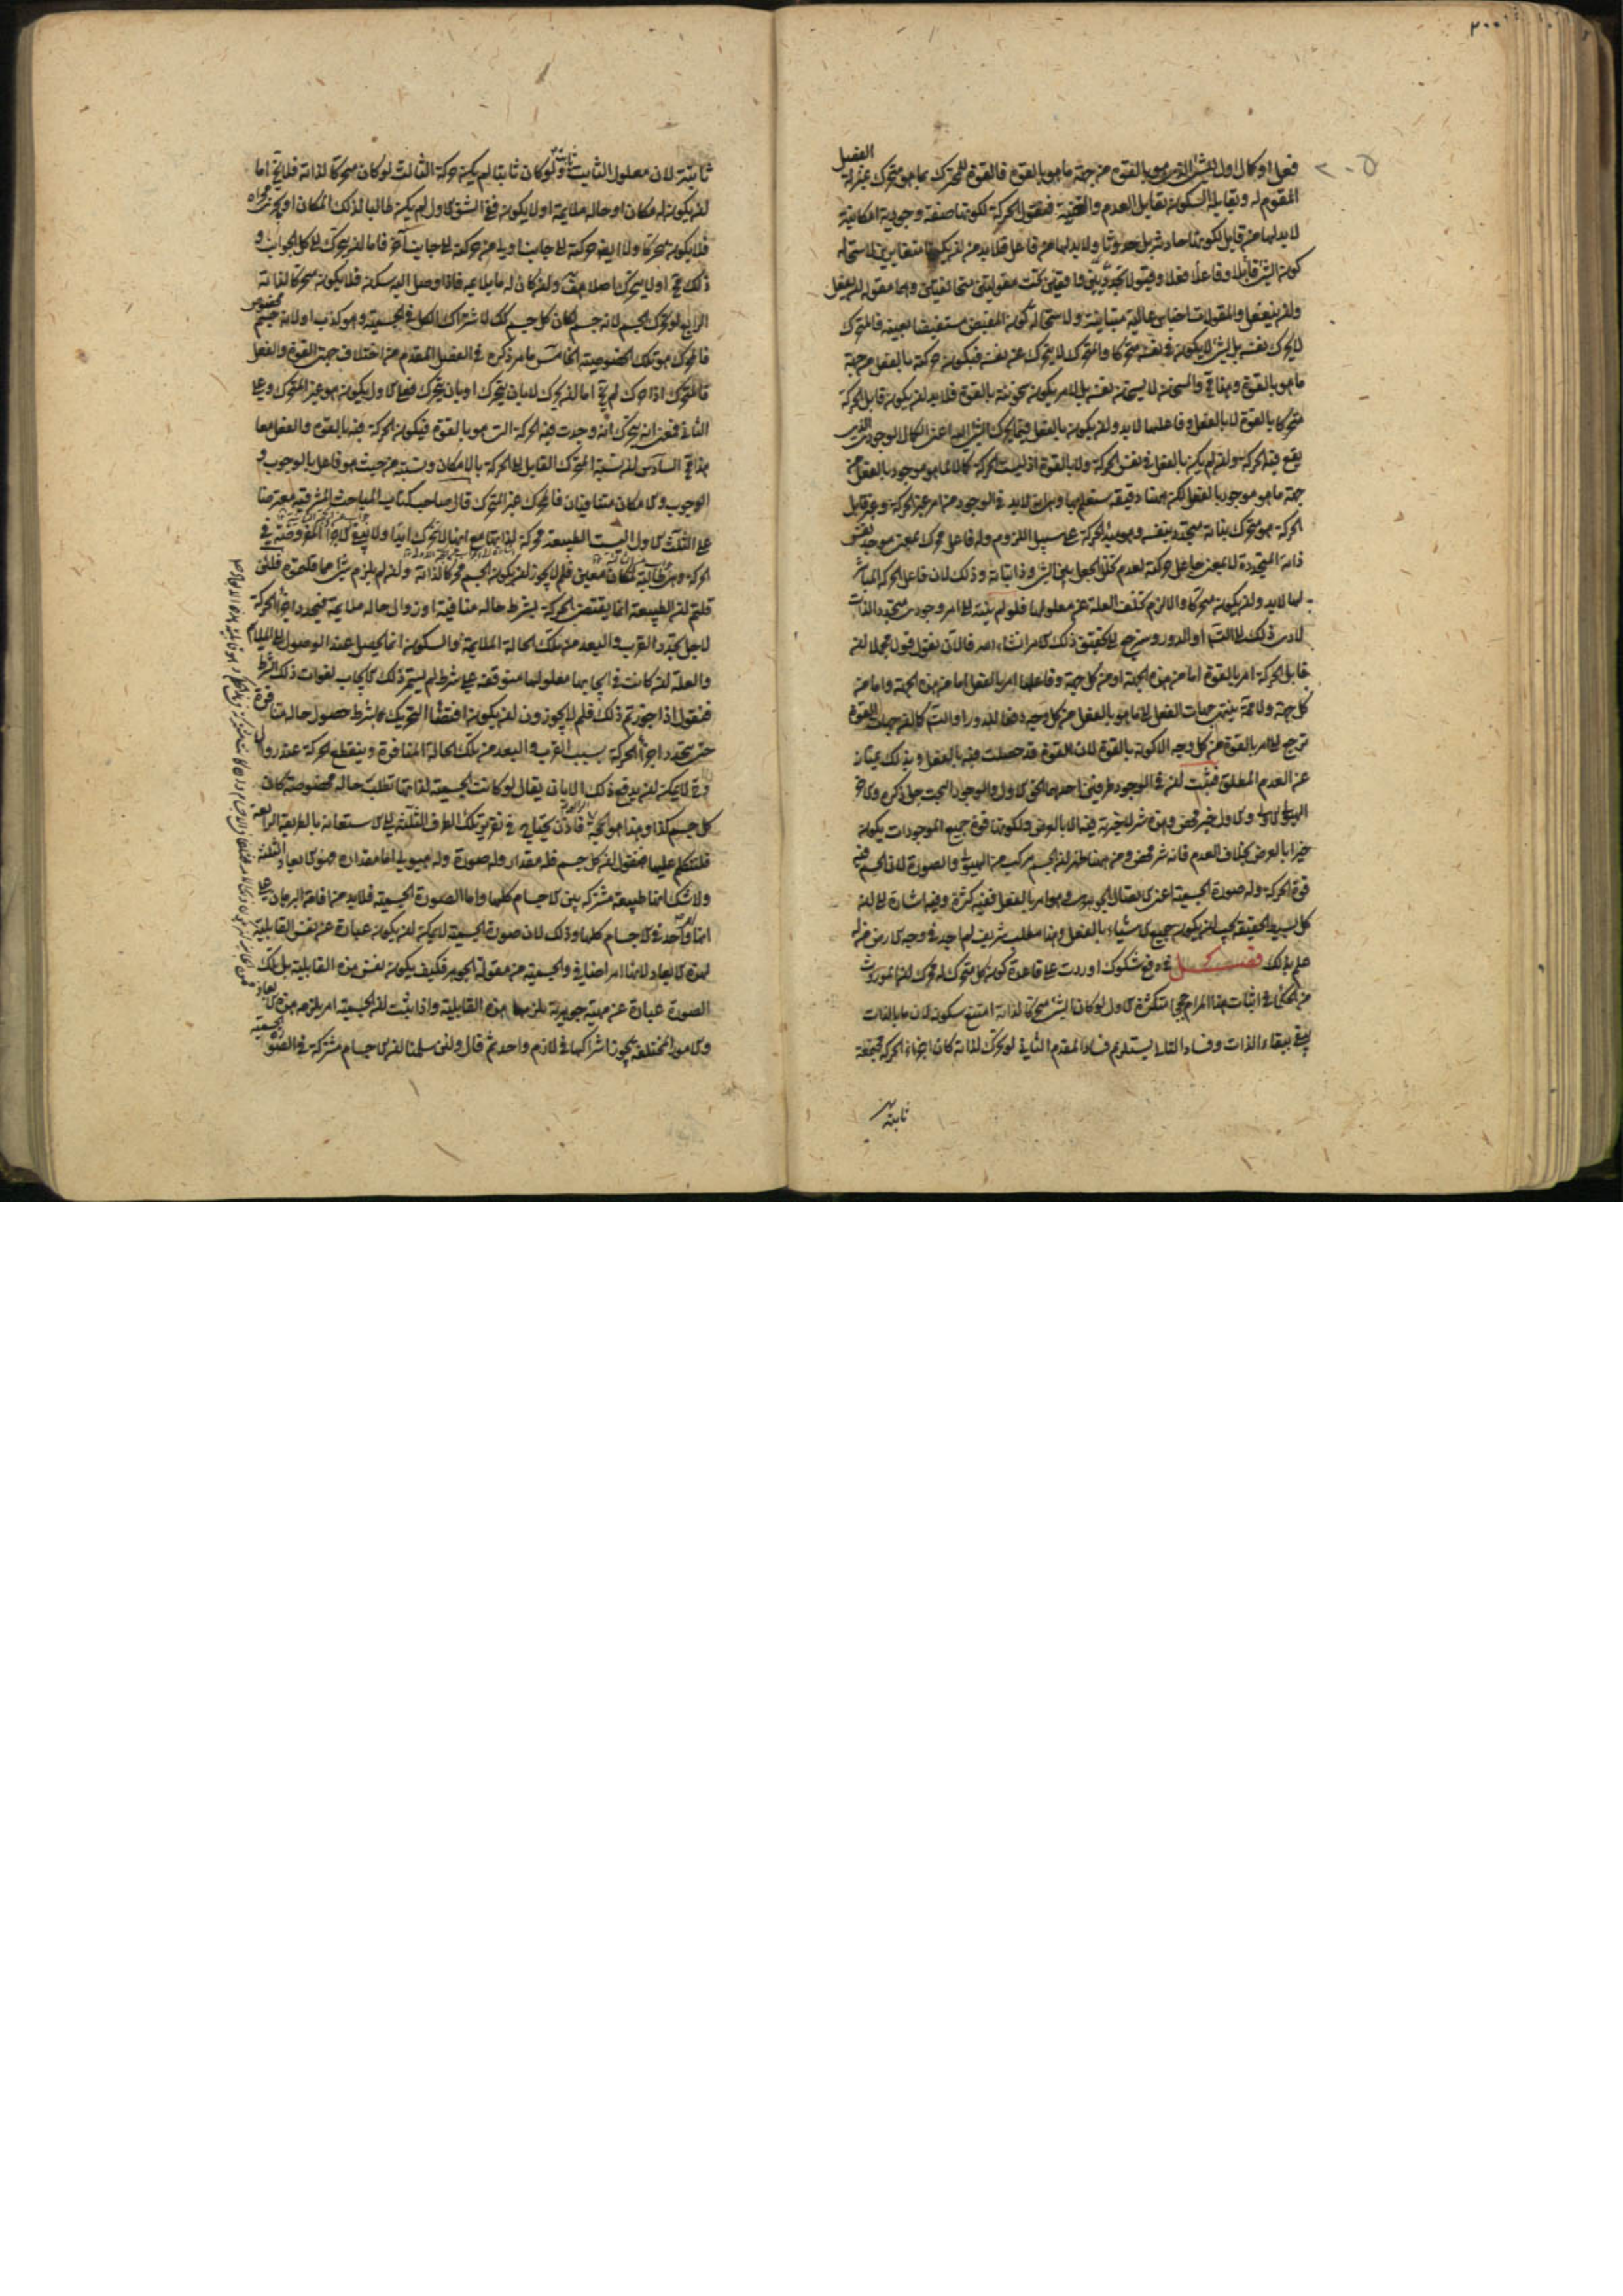 ٢٠٠
٢٠٥
فعل او كمال اول للشئ الذى هو بالقوة من جهة ما هو بالقوة فالقوة للمتحرك بما هو متحرك بمنزلة الفصل
المقوم له ويقابله السكون تقابل العدم والقنية فنقول الحركة لكونها صفة وجودية امكانية
لا بد لها من قابل ولكونها حادثة بل حدوثا ولا بد لها من فاعل فلا بد من ان يكونا متغايرين لاستحالة
كون الشئ قابلا وفاعلا فعلا وقبولا تجدديين واقعين تحت مقولتين متخالفتين وهما مقولة ان يفعل
وان ينفعل والمقولات اجناس عالية متباينة ولاستحالة كون المفيض مستفيضا بعينه فالمتحرك
لا يحرك نفسه بل لشئ لا يكون فى نفسه متحركا والمتحرك لا يتحرك عن نفسه فيكون حركته بالفعل من جهة
ما هو بالقوة وهذا مح والمسخن لا يسخن نفسه بل لامر يكون سخونته بالقوة فلا بد ان يكون قابل الحركة
متحركا بالقوة لا بالفعل وفاعلها لا بد وان يكون بالفعل فيما يحرك الشئ اليه اعنى الكمال الوجودى الذى
يقع فيه الحركة وان لم يكن بالفعل فى نفس الحركة ولا بالقوة اذ ليست الحركة كمالا لما هو موجود بالفعل من
جهة ما هو موجود بالفعل لكن ههنا دقيقة ستعلم بها وهى ان لا بد فى الوجود من امر غير الحركة وغير قابل
الحركة هو متحرك بذاته متجدد بنفسه وهو مبدء الحركة على سبيل اللزوم وله فاعل محرك بمعنى موجد نفس
ذاته المتجددة لا بمعنى جاعل حركته لعدم تخلل الجعل بين الشئ وذاتياته وذلك لان فاعل الحركة المباشر
لها لا بد وان يكون متحركا والا لزم تخلف العلة عن معلولها فلو لم ينته الى امر وجودى متجدد الذات
لادى ذلك الى التس او الدور وسنرجع الى تحقيق ذلك الامر انشاء الله فالان نقول قولا مجملا ان
قابل الحركة امر بالقوة اما من هذه الجهة او من كل جهة وفاعلها امر بالفعل اما من هذه الجهة واما من
كل جهة ولا محة ينتهى جهات الفعل الى ما هو بالفعل من كل وجه دفعا للدور او التس كما ان جهات القوة
ترجع الى امر بالقوة من كل وجه الا كونه بالقوة لان القوة قد حصلت فيه بالفعل وبذلك يمتاز
عن العدم المطلق فثبت ان فى الوجود طرفين احدهما الحق الاول والوجود البحت جل ذكره والاخر
الهيولى الاولى والاول خير محض وهذه شر لا خيرية فيه الا بالعرض ولكونها قوة جميع الموجودات يكون
خيرا بالعرض بخلاف العدم فانه شر محض ومن ههنا ظهر ان الجسم مركب من الهيولى والصورة لان الجسم فيه
قوة الحركة وله صورة الجسمية اعنى الاتصال الجوهرى وهو امر بالفعل ففيه كثرة وفيه اشارة الى ان
كل بسيط الحقيقة يجب ان يكون جميع الاشياء بالفعل وهذا مطلب شريف لم اجد فى وجه الارض من له
علم بذلك فصـــــل فى دفع شكوك اوردت على قاعدة كون كل متحرك له محرك ان الموروث
من الحكماء فى اثبات هذا المرام حجج متكثرة الاول لو كان الشئ متحركا لذاته امتنع سكونه لان ما بالذات
يبقى ببقاء الذات وفساد التالى يستلزم فساد المقدم الثانى لو تحرك لذاته كان اجزاء الحركة مجتمعة
ثابتة
ثابتة لان معلول الثابت ثابت ولو كان ثابتا لم يكن حركة الثالث لو كان متحركا لذاته فلا يخ اما
ان يكون له مكان او حالة ملايمة اولا يكون فعلى الشق الاول لم يكن طالبا لذلك المكان او
فلا يكون متحركا ولا ايضا حركته الى جانب اولى من حركته الى جانب آخر فاما ان يتحرك الى كل الجوانب و
ذلك مح او لا يتحرك اصلا هف وان كان له ما يلايمه فاذا وصل اليه سكن فلا يكون متحركا لذاته
الرابع لو تحرك الجسم لانه جسم لكان كل جسم كك لاشتراك الكل فى الجسمية وهو كذب او لانه جسم مخصوص
فالمحرك هو تلك الخصوصية الخامس ما مر ذكره فى الفصل المقدم من اختلاف جهتى القوة والفعل
فالمتحرك اذا حرك لم يخ اما ان يحرك لا بان يتحرك او بان يتحرك فعلى الاول يكون هو غير المتحرك وعلى
الثانى فمعنى انه يتحرك انه وجدت فيه الحركة التى هو بالقوة فيكون الحركة فيه بالقوة والفعل معا
هذا مح السادس ان نسبة المتحرك القابل الى الحركة بالامكان ونسبته من حيث هو فاعل بالوجوب و
الوجوب والامكان متنافيان فالمحرك غير المتحرك قال صاحب كتاب المباحث المشرقية معترضا
على الثلث الاول اليست الطبيعة محركة لذاتها مع انها لا تحرك ابدا ولا يبقى الاجزاء المفروضة فى
الحركة وهى طالبة لمكان معين فلم لا يجوز ان يكون الجسم محركا لذاته وان لم يلزم شئ مما قلتموه فلئن
قلتم ان الطبيعة انما يقتضى الحركة بشرط حالة منافية او زوال حالة ملايمة فيتجدد اجزاء الحركة
لاجل تجدد القرب والبعد من تلك الحالة الملايمة والسكون انما يحصل عند الوصول الى الملايم
والعلة ان كانت فى ايجابها معلولها متوقفة على شرط لم يستمر ذلك الايجاب لفوات ذلك الشرط
فنقول اذا جوزتم ذلك فلم لا يجوزون ان يكون اقتضاء التحريك بشرط حصول حالة منافرة
حتى يتجدد اجزاء الحركة بسبب القرب والبعد من تلك الحالة المنافرة وينقطع الحركة عند زوالها
فح لا يمكن ان يدفع ذلك الا بان يقال لو كانت الجسمية لذاتها تطلب حالة مخصوصة كان
كل جسم كذا وهذا هو الحجة الرابعة فاذن يحتاج فى تقرير تلك الطرق الثلثة الى الاستعانة بالطريقة الرابعة
فلنتكلم عليها فنقول ان كل جسم فله مقدار وله صورة وله هيولى اما مقداره هو الابعاد الثلثة
ولا شك انها طبيعة مشتركة بين الاجسام كلها واما الصورة الجسمية فلا بد من اقامة البرهان على
انها امر واحد فى الاجسام كلها وذلك لان صورة الجسمية لا يمكن ان يكون عبارة عن نفس القابلية
لهذه الابعاد لانها امر اضافى والجسمية من مقولة الجوهر فكيف يكون نفس هذه القابلية بل تلك
الصورة عبارة عن مهية جوهرية يلزمها هذه القابلية واذا ثبت ان الجسمية امر يلزمه هذه الابعاد
والامور المختلفة يجوز اشتراكها فى لازم واحد ثم قال ولئن سلمنا ان الاجسام مشتركة فى الصورة الجسمية